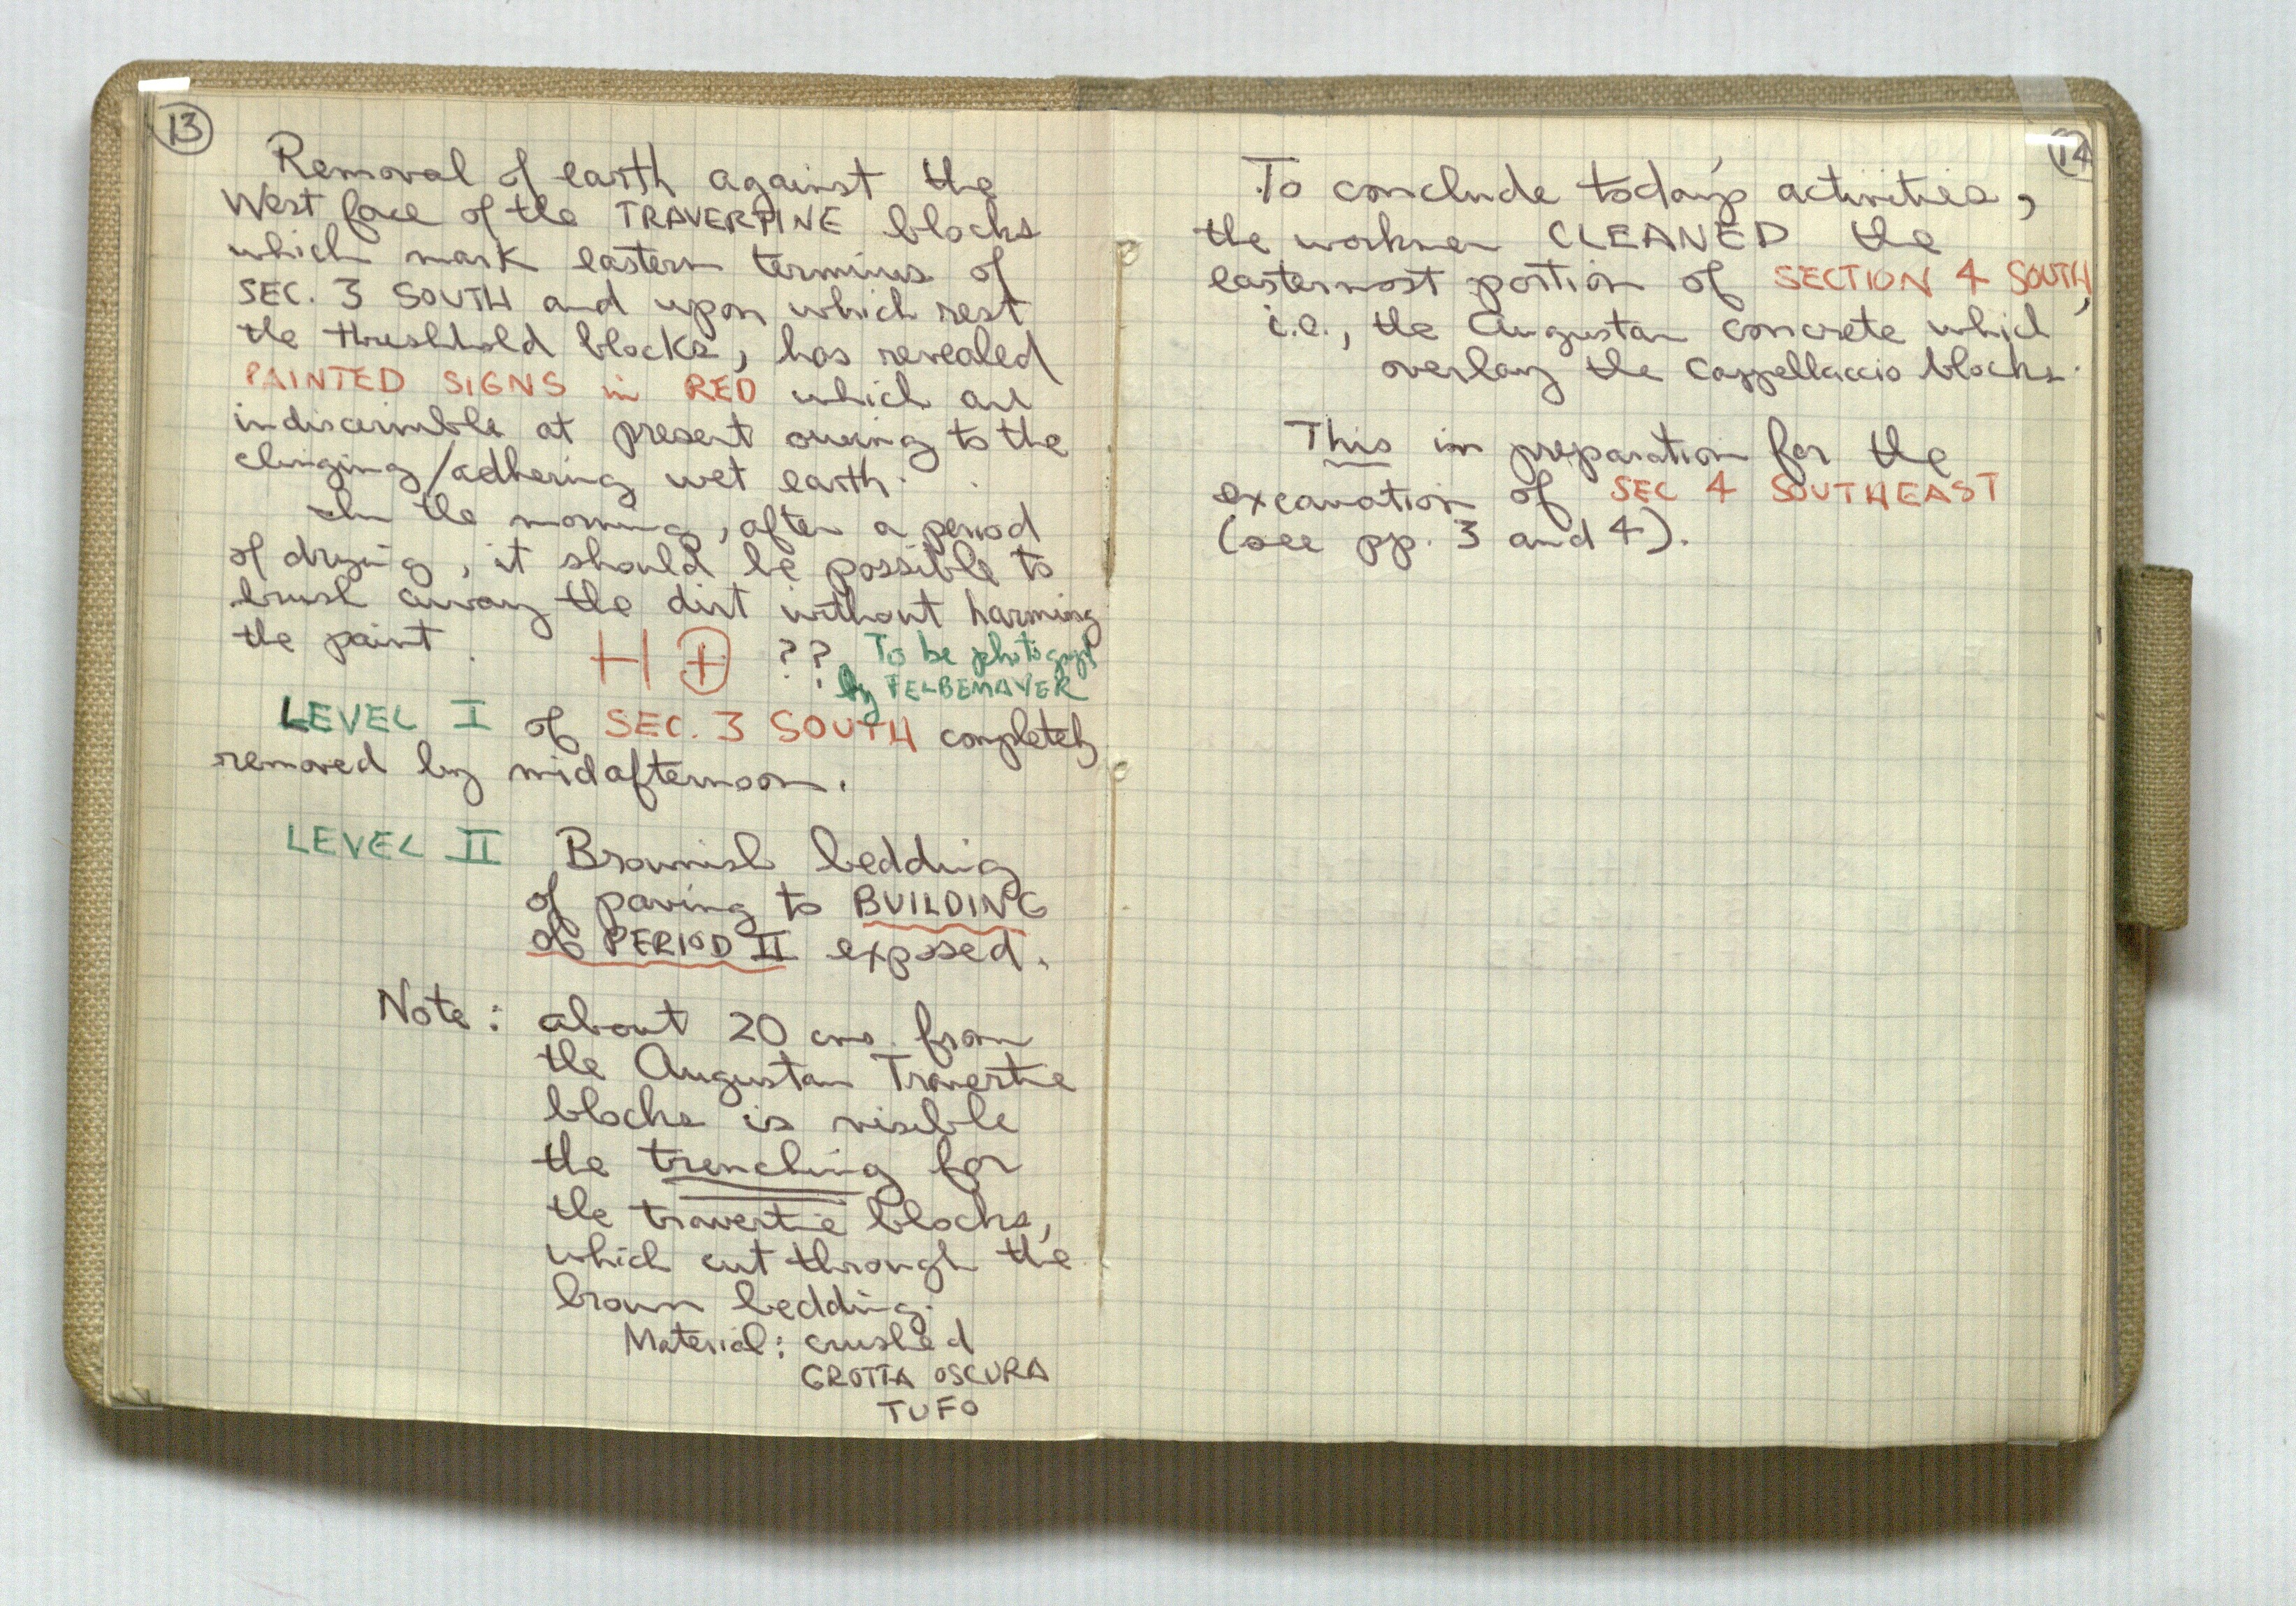 13
Removal of earth against the
West face of the TRAVERTINE blocks
which mark eastern terminus of
SEC. 3 SOUTH and upon which rest
the threshhold blocks, has revealed
PAINTED SIGNS in RED which are
indiscernible at present owing to the
clinging/adhering wet earth.
In the morning, after a period
of drying, it should be possible to
brush away the dirt without harming
the paint.
H ?? To be photogrpd
by FELBEMAYER
LEVEL I of SEC. 3 SOUTH completely
removed by midafternoon.
LEVEL II Brownish bedding
of paving to BUILDING
of PERIOD II exposed.
Note: about 20 cms. from
the Augustan Travertine
blocks is visible
the trenching for
the travertine blocks,
which cut through the
brown bedding.
Material: crushed
GROTTA OSCURA
TUFO
14
To conclude today's activities,
the workmen CLEANED the
easternmost portion of SECTION 4 SOUTH,
i.e., the Augustan concrete which
overlay the Cappellaccio blocks.
This in preparation for the
excavation of SEC 4 SOUTHEAST
(see pp. 3 and 4).